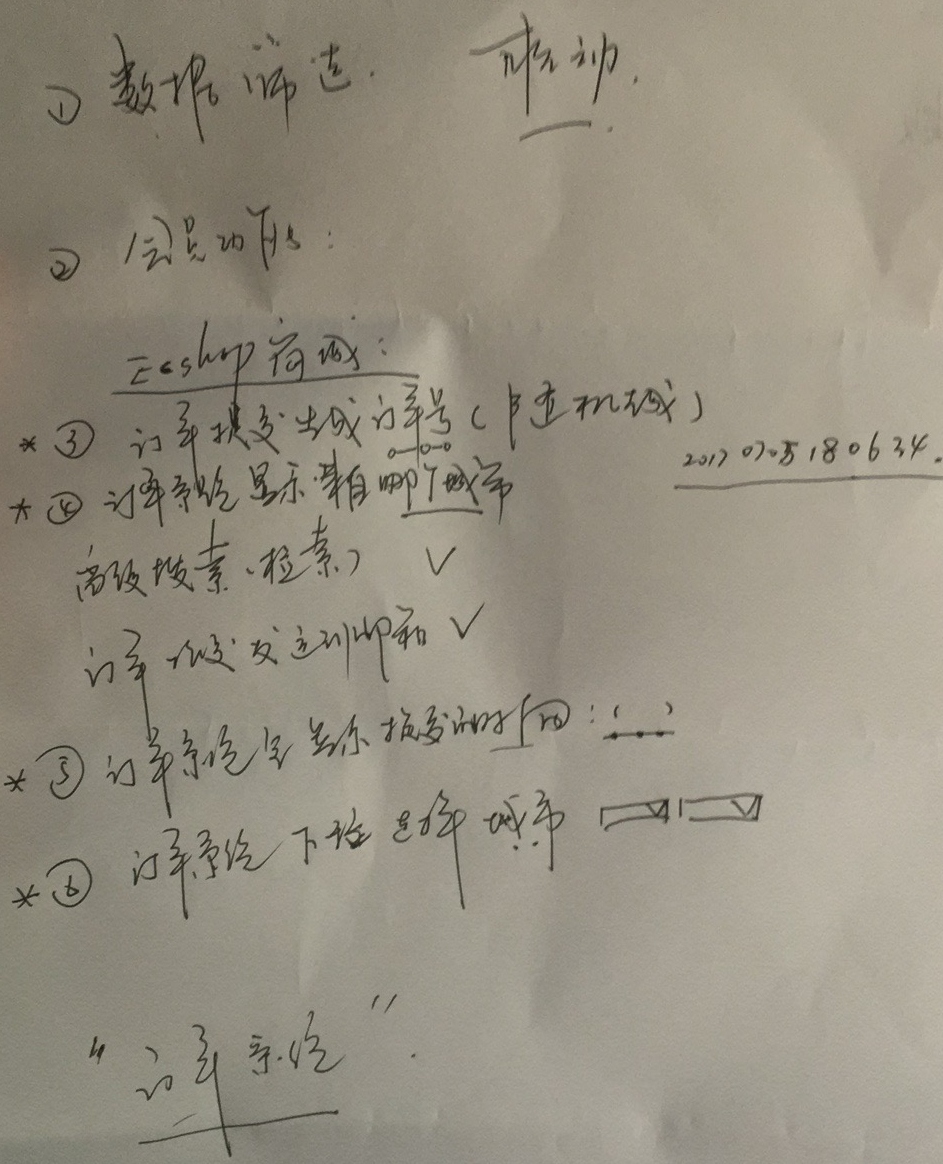 ① 数据筛选.
② 会员功能:
Ecshop商城:
* ③ 订单提交生成订单号(随机生成)
20170705180634.
* ④ 订单系统显示来自哪个城市
高级搜索(检索) ✓
订单提交发送到邮箱 ✓
* ⑤ 订单系统 显示提交的时间:( )
* ⑥ 订单系统下拉选择城市
“订单系统”.